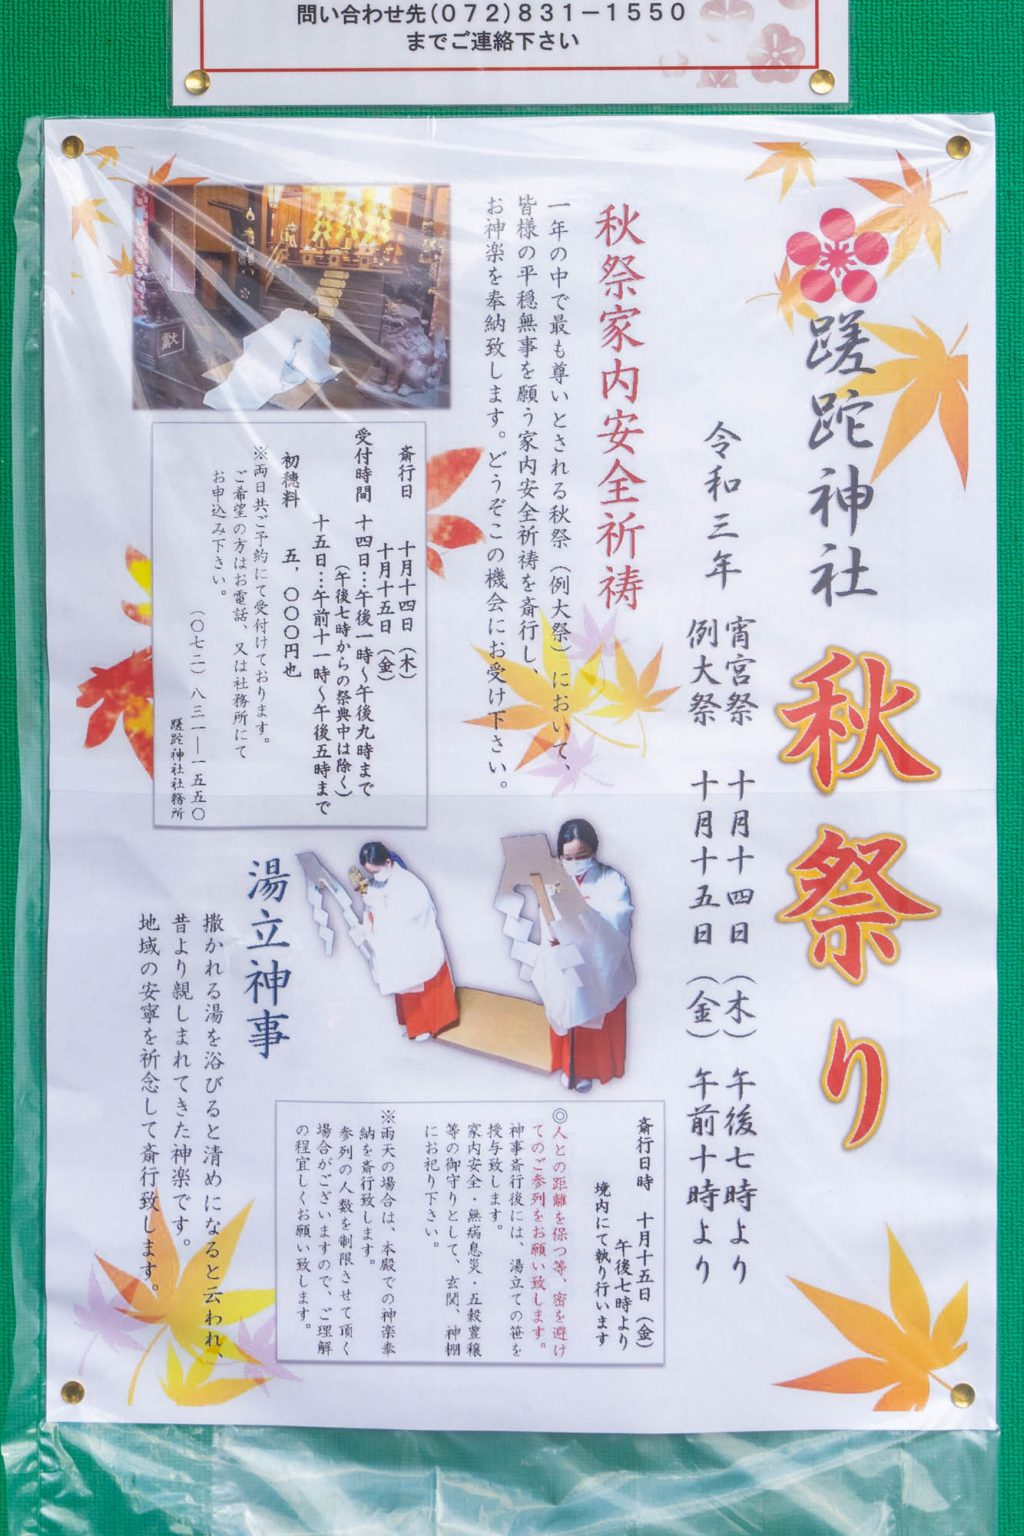 問い合わせ先(072)831－1550
までご連絡下さい
蹉跎神社 秋祭り
令和三年 宵宮祭 十月十四日(木) 午後七時より
例大祭 十月十五日(金) 午前十時より
秋祭家内安全祈祷
一年の中で最も尊いとされる秋祭(例大祭)において、
皆様の平穏無事を願う家内安全祈祷を斎行し、
お神楽を奉納致します。どうぞこの機会にお受け下さい。
献
斎行日 十月十四日(木)
十月十五日(金)
受付時間 十四日…午後一時～午後九時まで
(午後七時からの祭典中は除く)
十五日…午前十一時～午後五時まで
初穂料 五,〇〇〇円也
※両日共ご予約にて受付けております。
ご希望の方はお電話、又は社務所にて
お申込み下さい。
(〇七二)八三一―一五五〇
蹉跎神社社務所
湯立神事
撒かれる湯を浴びると清めになると云われ、
昔より親しまれてきた神楽です。
地域の安寧を祈念して斎行致します。
斎行日時 十月十五日(金)
午後七時より
境内にて執り行います
◎人との距離を保つ等、密を避け
てのご参列をお願い致します。
神事斎行後には、湯立ての笹を
授与致します。
家内安全・無病息災・五穀豊穣
等の御守りとして、玄関、神棚
にお祀り下さい。
※雨天の場合は、本殿での神楽奉
納を斎行致します。
参列の人数を制限させて頂く
場合がございますので、ご理解
の程宜しくお願い致します。